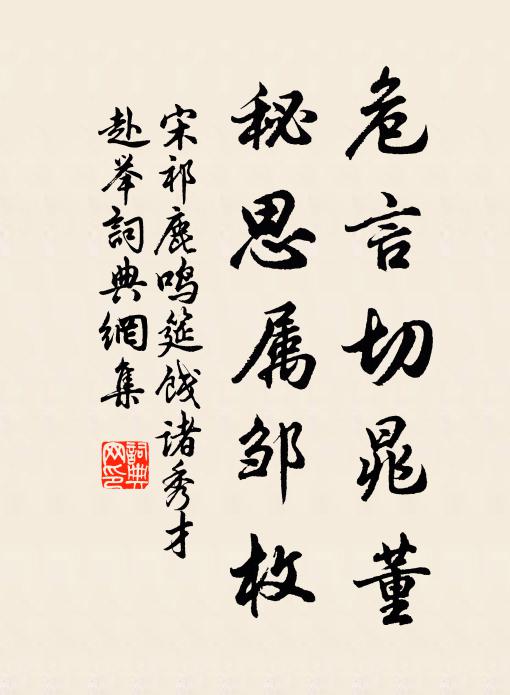 危言切晁董
秘思属邹枚
宋祁鹿鸣筵饯诸秀才
赴举詞典網集
詞典
网印